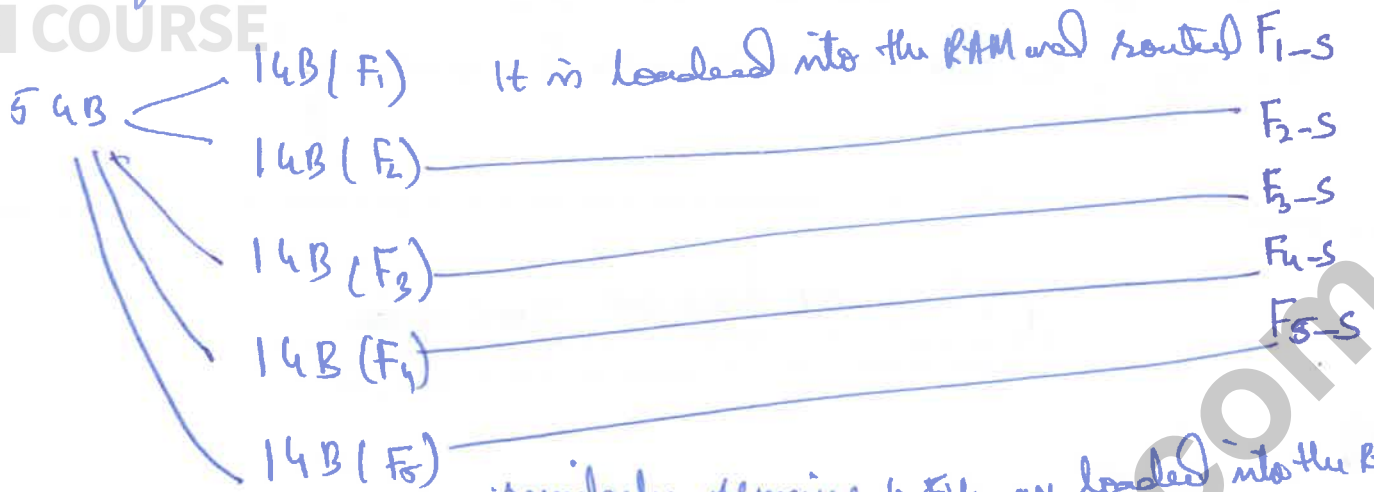 COURSE
1GB (F1) It is loaded into the RAM and sorted F1-S
5 GB
1GB (F2) F2-S
1GB (F3) F3-S
1GB (F4) F4-S
1GB (F5) F5-S
remaining 4 loaded into the
com